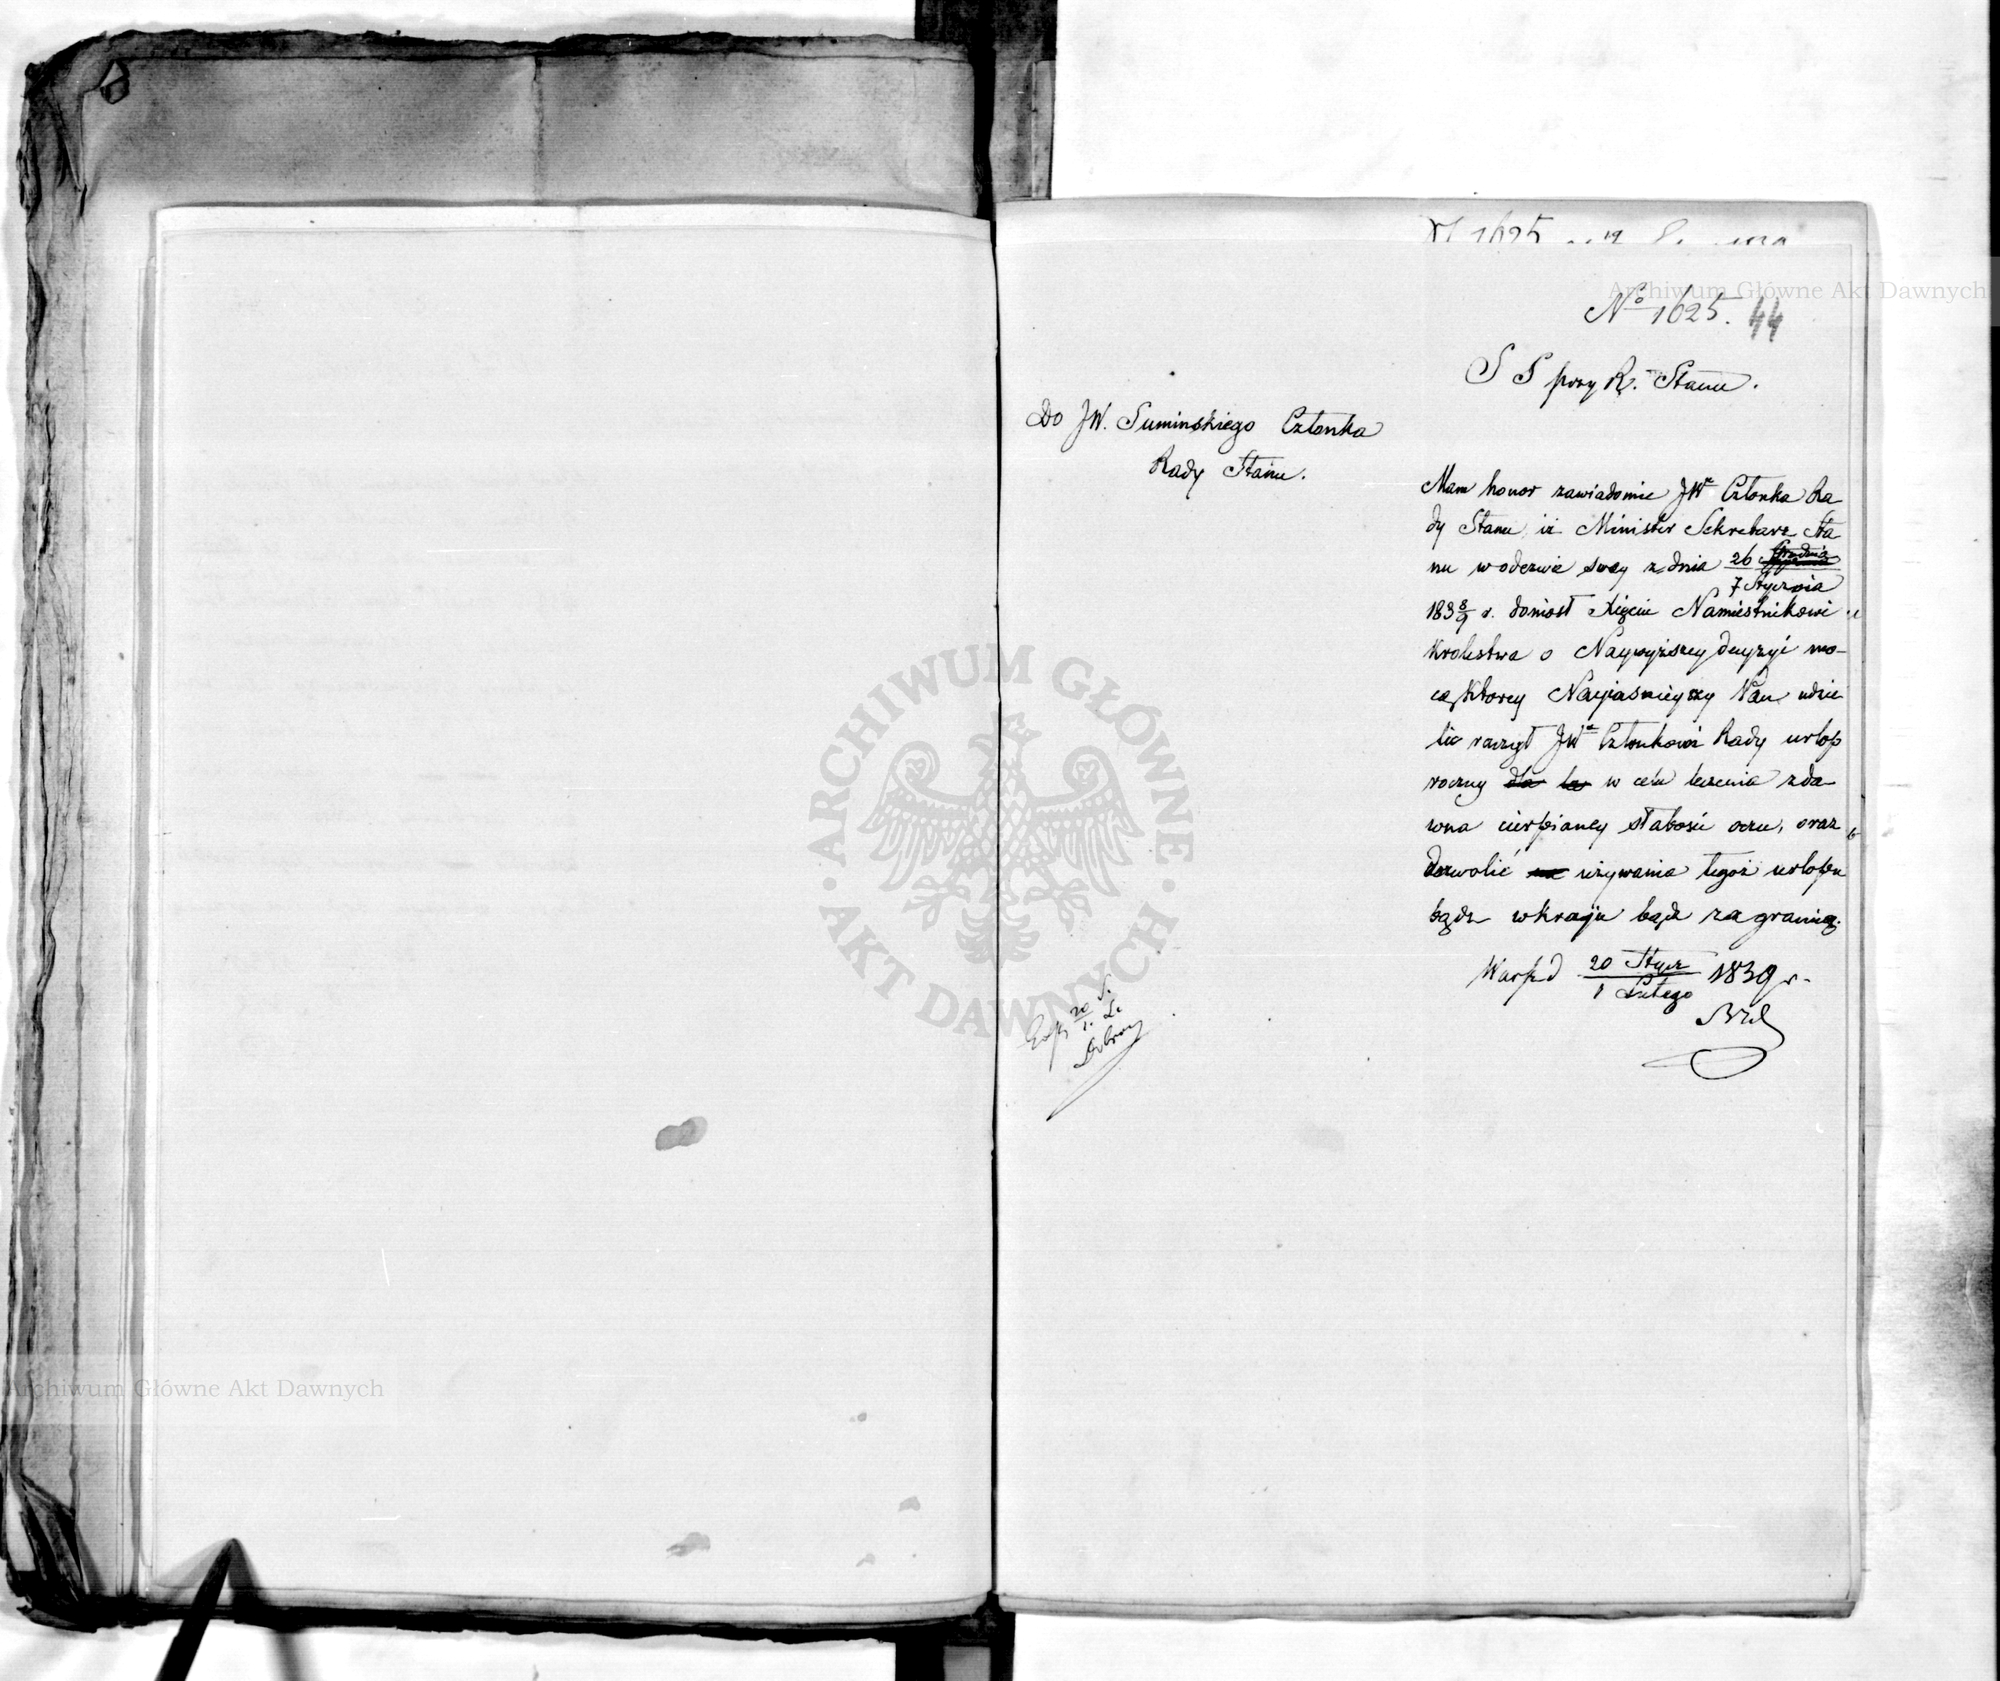 Nº 1625. 44
S S przy R. Stanu.
Do JW. Suminskiego Członka
Rady Stanu.
Mam honor zawiadomic JWº Członka Ra-
dy Stanu iż Minister Sekretarz Sta
nu w odezwie swey z dnia 26 Grudnia
7 Stycznia
183 8/9 r. doniosł Xięciu Namiestnikowi
Krolestwa o Naywyższey decyzyi mo-
cą ktorey Nayiasnieyszy Pan udzie
lic raczył JWº Członkowi Rady urlop
roczny dla le w celu leczenia zda
wna cierpianey słabosci oczu, oraz
dozwolić na używania tegoż urlopu
bądz w kraju bądz za granicą.
Warsz d 20 Stycz 1839 r.
1 Lutego
Exp 20 S.
1. L.
Archiwum Główne Akt Dawnych
ARCHIWUM GŁÓWNE
AKT DAWNYCH
Archiwum Główne Akt Dawnych